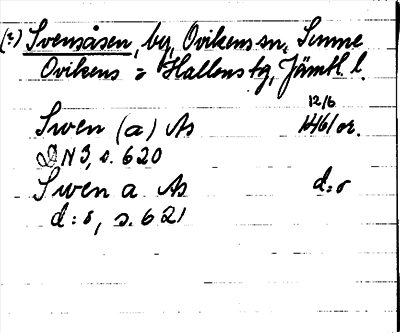 (2) Svensåsen, by, Ovikens sn, Sunne
Ovikens o Hallens tg, Jämtl. l.
12/6
Swen (a) As 14/6/or.
N3, s. 620
Swen a As d:o
d:o, s. 621